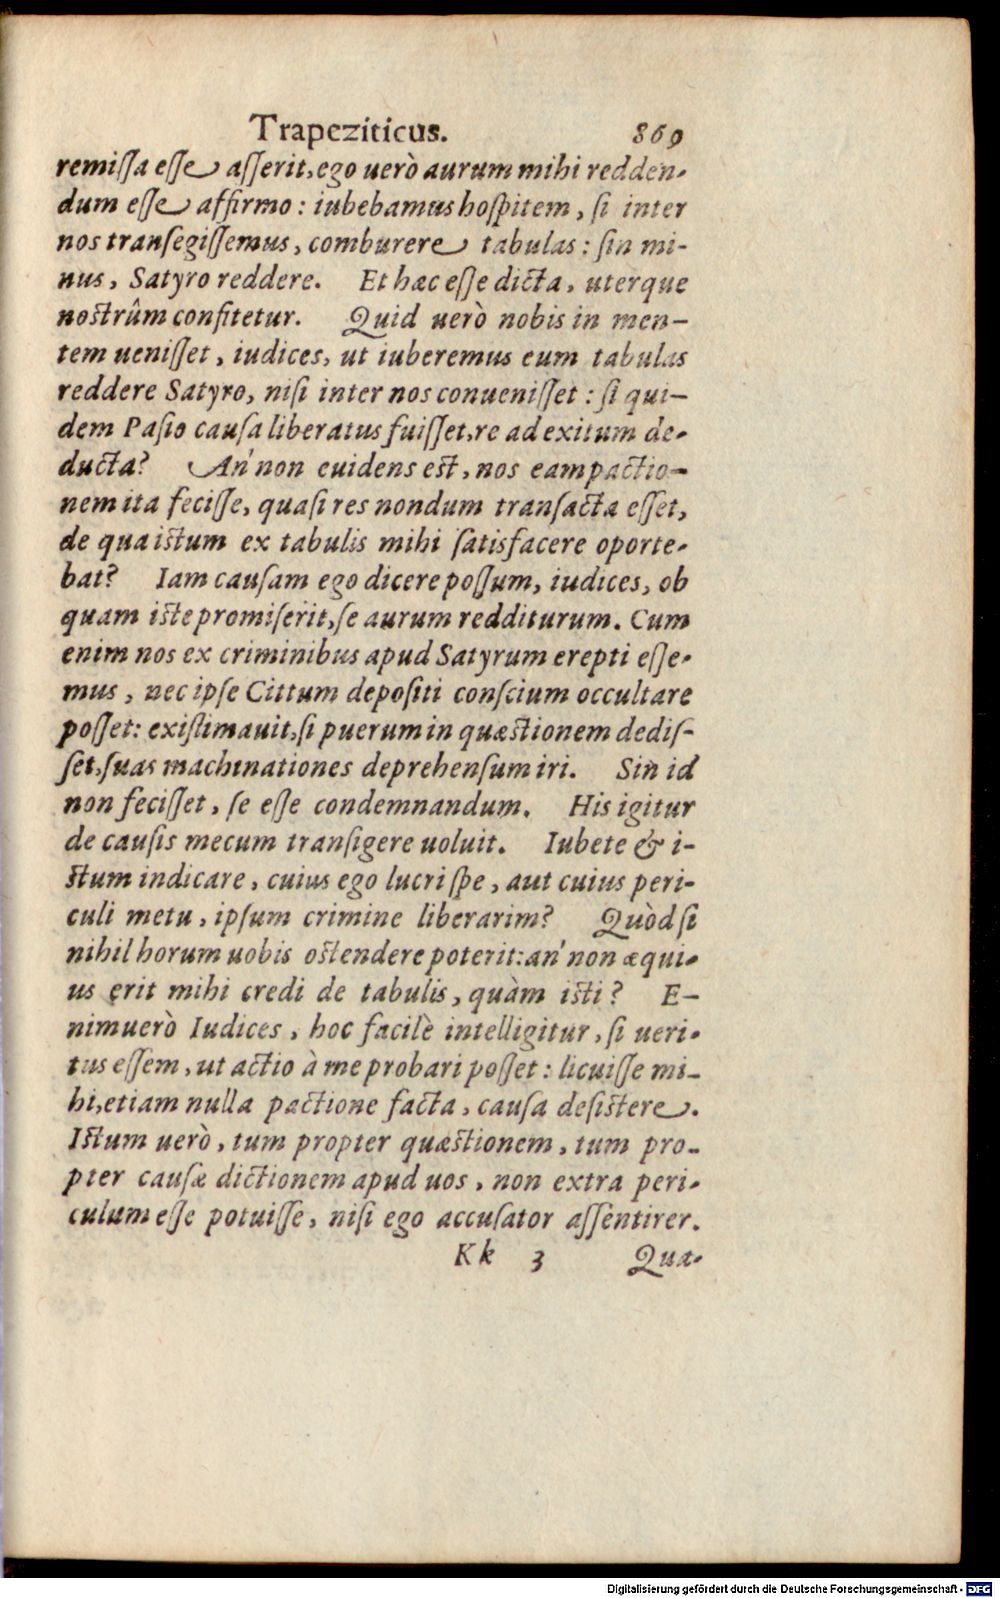 Trapeziticus. 869
remiſſa eſſe aſſerit, ego uerò aurum mihi redden-
dum eſſe affirmo: iubebamus hoſpitem, ſi inter
nos tranſegiſſemus, comburere tabulas: ſin mi-
nus, Satyro reddere. Et hæc eſſe dicta, uterque
noſtrûm confitetur. Quid uerò nobis in men-
tem ueniſſet, iudices, ut iuberemus eum tabulas
reddere Satyro, niſi inter nos conueniſſet: ſi qui-
dem Paſio cauſa liberatus fuiſſet, re ad exitum de-
ducta? An' non euidens eſt, nos eam pactio-
nem ita feciſſe, quaſi res nondum tranſacta eſſet,
de qua iſtum ex tabulis mihi ſatisfacere oporte-
bat? Iam cauſam ego dicere poſſum, iudices, ob
quam iſte promiſerit, ſe aurum redditurum. Cum
enim nos ex criminibus apud Satyrum erepti eſſe-
mus, nec ipſe Cittum depoſiti conſcium occultare
poſſet: exiſtimauit, ſi puerum in quæſtionem dediſ-
ſet, ſuas machinationes deprehenſum iri. Sin id
non feciſſet, ſe eſſe condemnandum. His igitur
de cauſis mecum tranſigere uoluit. Iubete & i-
ſtum indicare, cuius ego lucri ſpe, aut cuius peri-
culi metu, ipſum crimine liberarim? Quòd ſi
nihil horum uobis oſtendere poterit: an' non æqui-
us erit mihi credi de tabulis, quàm iſti? E-
nimuerò Iudices, hoc facilè intelligitur, ſi ueri-
tus eſſem, ut actio à me probari poſſet: licuiſſe mi-
hi, etiam nulla pactione facta, cauſa deſiſtere.
Iſtum uerò, tum propter quæſtionem, tum pro-
pter cauſæ dictionem apud uos, non extra peri-
culum eſſe potuiſſe, niſi ego accuſator aſſentirer.
Kk 3 Qua-
Digitalisierung gefördert durch die Deutsche Forschungsgemeinschaft - DFG